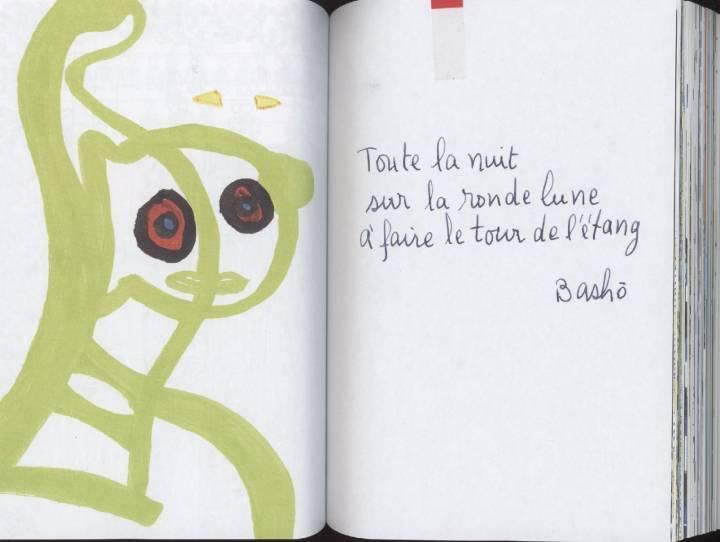 Toute la nuit
sur la ronde lune
à faire le tour de l'étang
Bashō